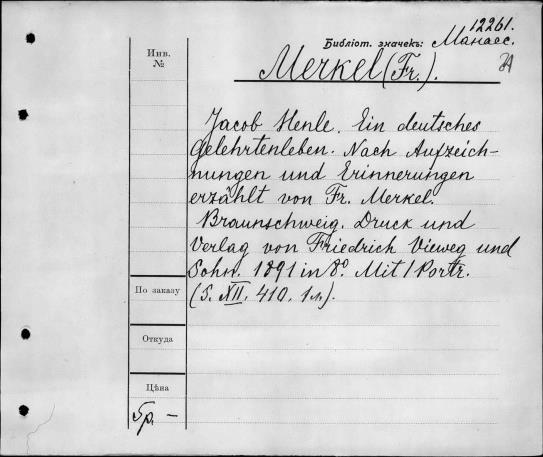 12261.
Библіот. значекъ: Манаес.
Инв.
№
Merkel (Fr.).
Jacob Henle. Ein deutsches
Gelehrtenleben. Nach Aufzeich-
nungen und Erinnerungen
erzählt von Fr. Merkel.
Braunschweig. Druck und
Verlag von Friedrich Vieweg und
Sohn. 1891 in 8º. Mit 1 Portr.
(S. XII. 410. 1 л.).
По заказу
Откуда
Цѣна
5р. —